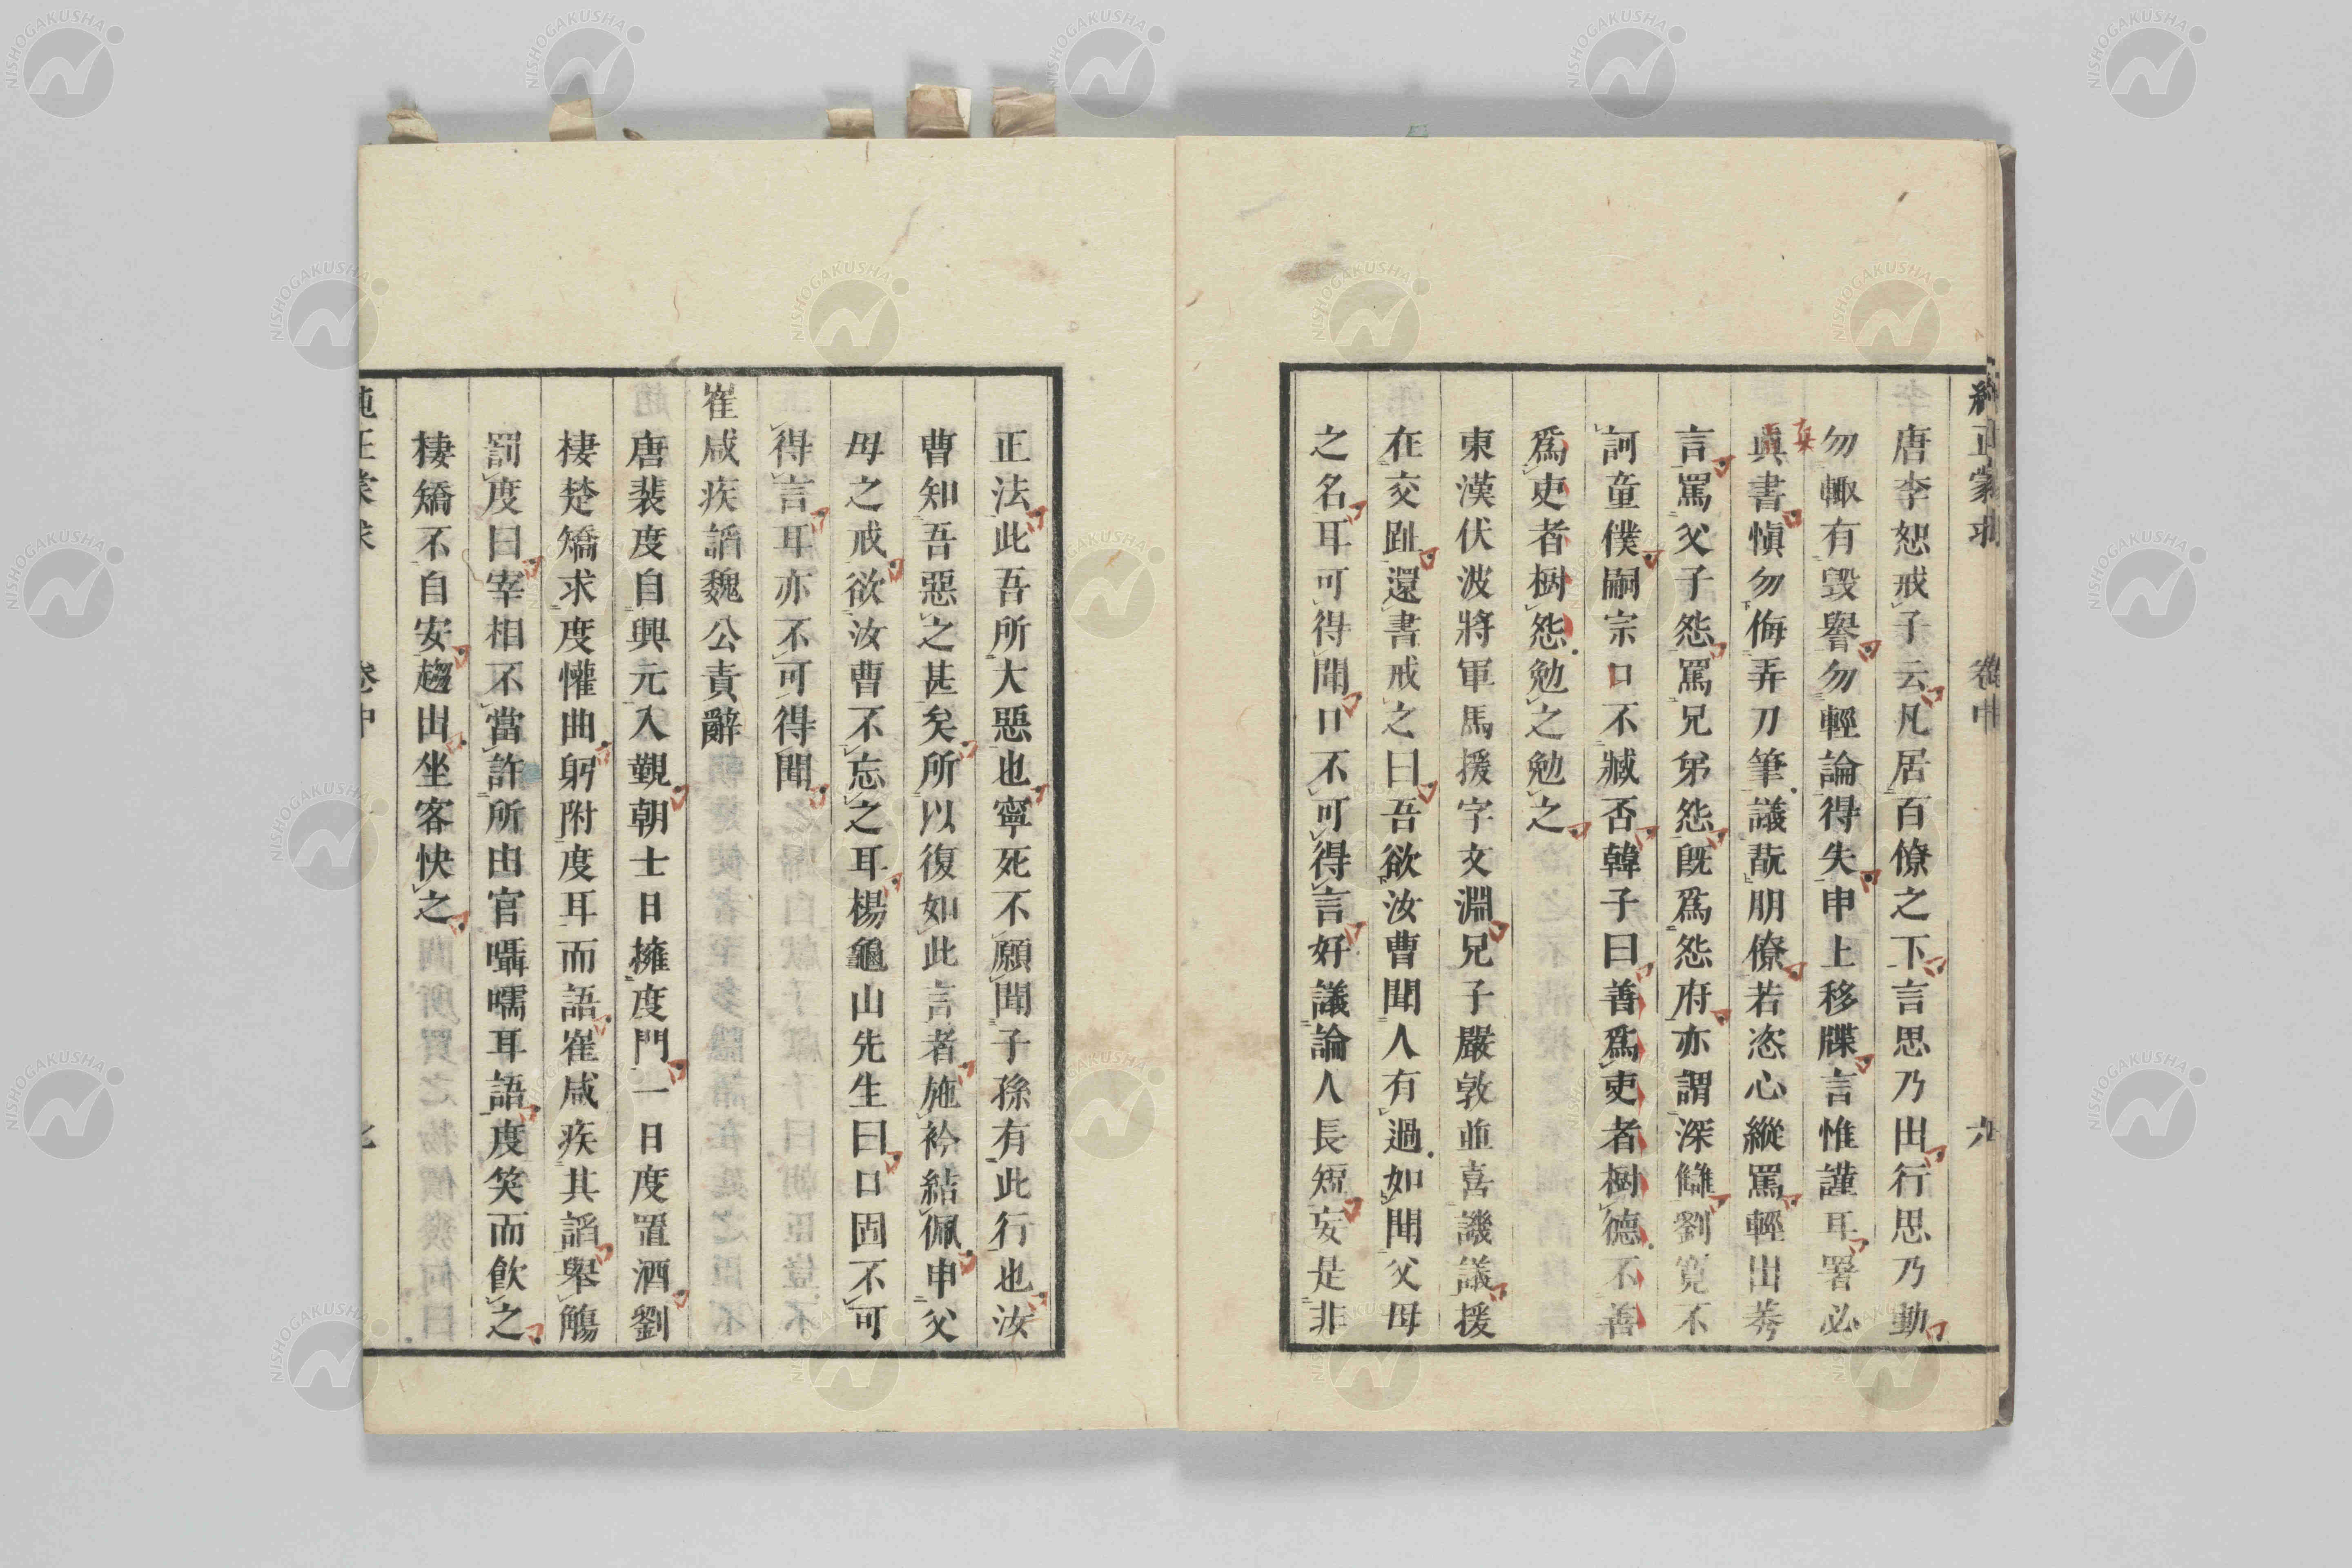 純正蒙求 卷中 九
唐李恕戒子云凡居百僚之下言思乃出行思乃動
勿輙有毀譽勿輕論得失申上移牒言惟謹耳署必
眞書愼勿侮弄刀筆議翫朋僚若恣心縱罵輕出莠
真
言罵父子怨罵兄弟怨旣爲怨府亦謂深讎劉寬不
訶童僕嗣宗口不臧否韓子曰善爲吏者樹德不善
爲吏者樹怨勉之勉之
東漢伏波將軍馬援字文淵兄子嚴敦並喜譏議援
在交趾還書戒之曰吾欲汝曹聞人有過如聞父母
之名耳可得聞口不可得言好議論人長短妄是非
正法此吾所大惡也寧死不願聞子孫有此行也汝
曹知吾惡之甚矣所以復如此言者施衿結佩申父
母之戒欲汝曹不忘之耳楊龜山先生曰口固不可
得言耳亦不可得聞
崔咸疾謟魏公責辭
唐裴度自興元入覲朝士日擁度門一日度置酒劉
棲楚矯求度懽曲躬附度耳而語崔咸疾其謟舉觴
罰度曰宰相不當許所由官囁嚅耳語度笑而飮之
棲矯不自安趨出坐客快之
純正蒙求 卷中
NISHOGAKUSHA